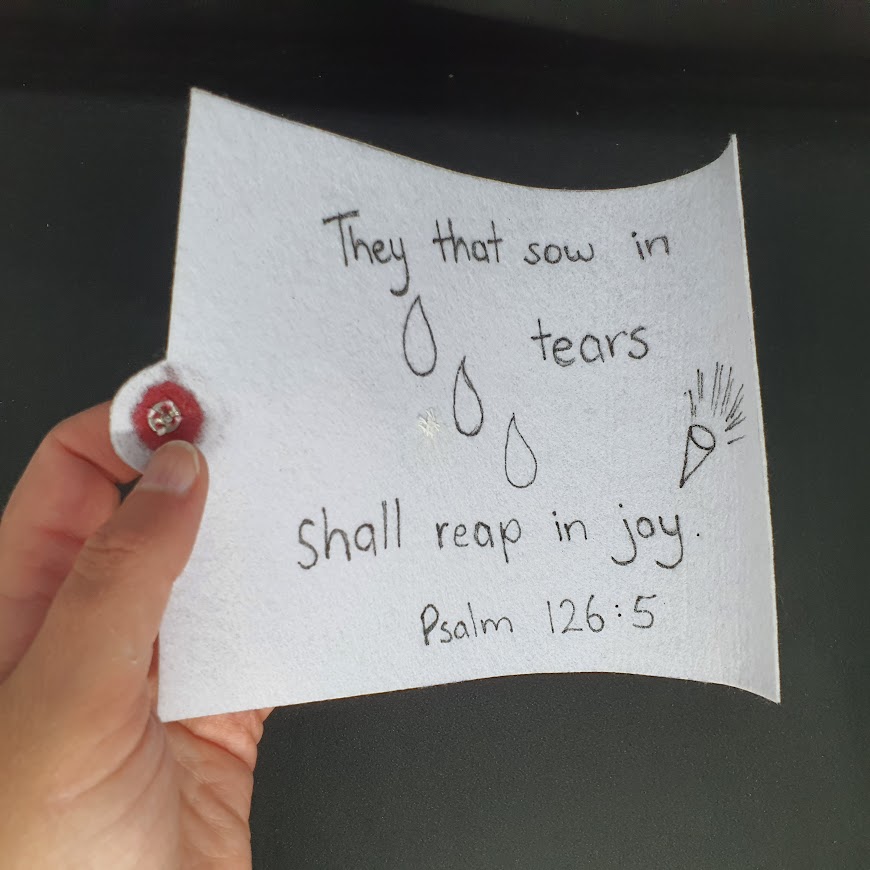 They that sow in
tears
shall reap in joy.
Psalm 126:5